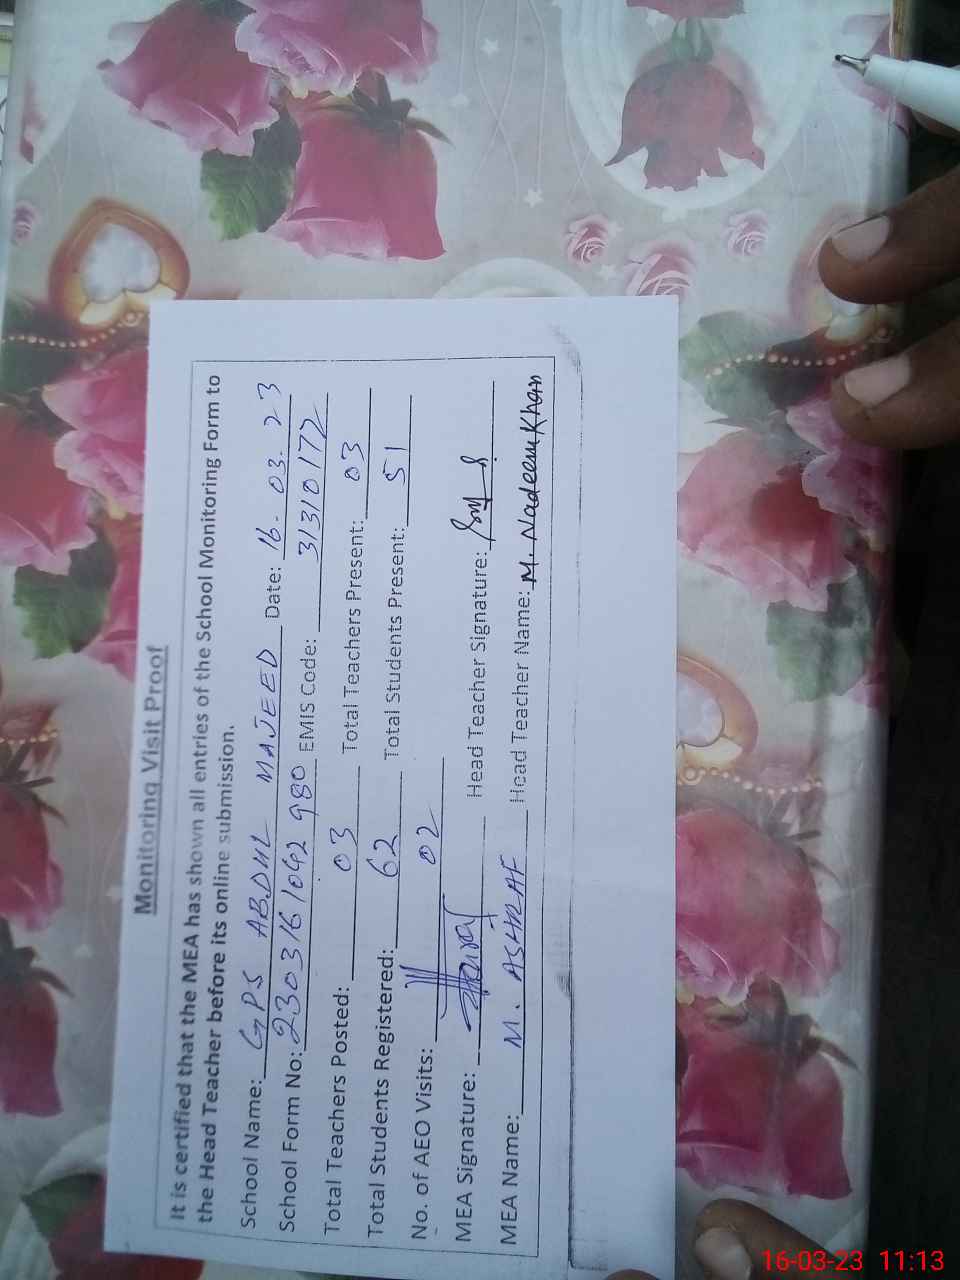 Monitoring Visit Proof
It is certified that the MEA has shown all entries of the School Monitoring Form to
the Head Teacher before its online submission.
School Name: GPS ABDUL MAJEED Date: 16-03-23
School Form No: 2303161092980 EMIS Code: 31310172
Total Teachers Posted: 03 Total Teachers Present: 03
Total Students Registered: 62 Total Students Present: 51
No. of AEO Visits: 02
MEA Signature: Head Teacher Signature:
MEA Name: M. ASHRAF Head Teacher Name: M. Nadeem Khan
16-03-23 11:13